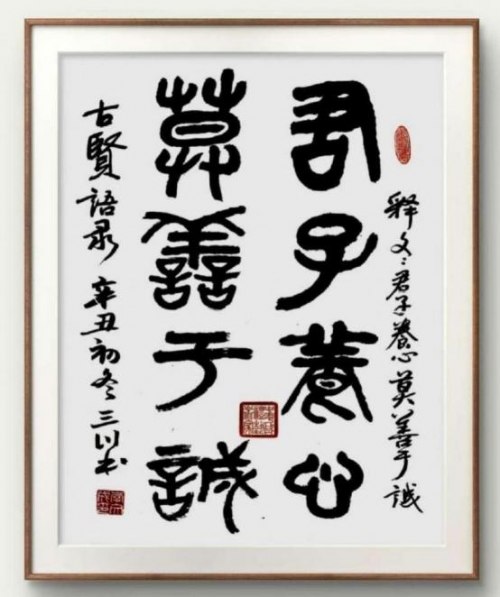 释文：君子养心莫善于誠
君子養心
莫善于誠
古賢語录 辛丑初冬三川书